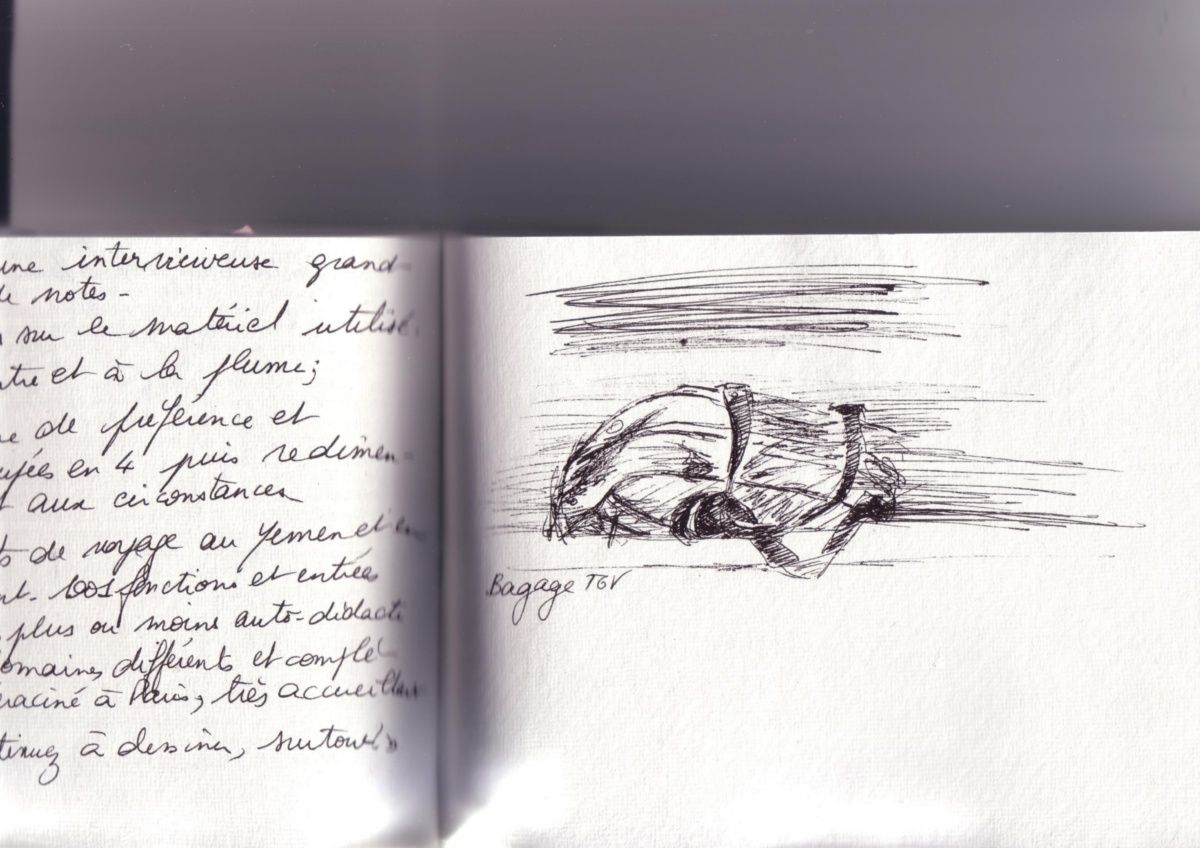 une interviewveuse grand-
de notes -
sur le matériel utilisé
et à la plume;
de préférence et
en 4 puis redimen-
aux circonstances
de voyage au Yemen et en
1001 fonctions et entrées
plus ou moins auto-didacte
domaines différents et complé
à Paris, très accueillant
à dessiner, surtout
Bagage TGV